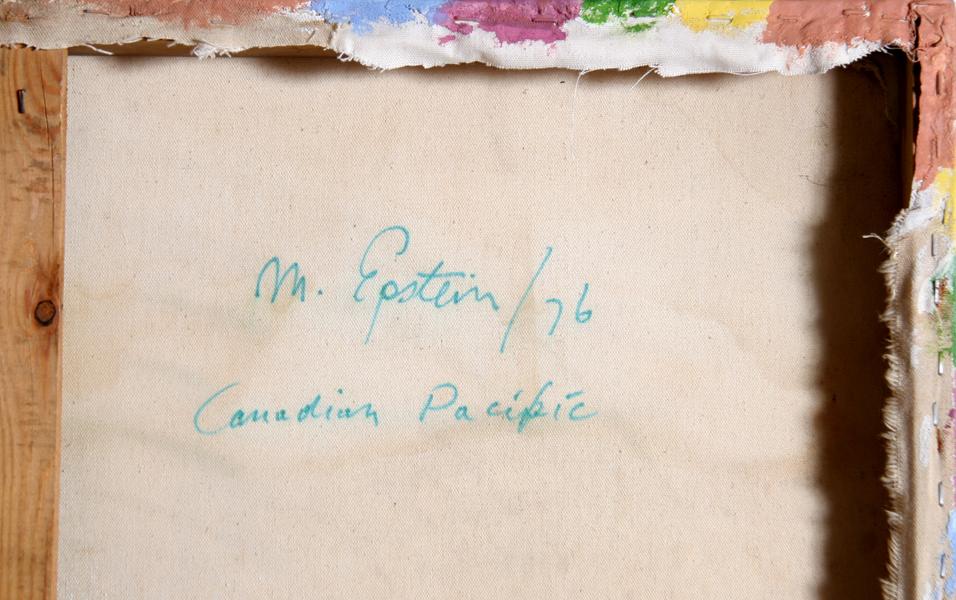 M. Epstein/76
Canadian Pacific